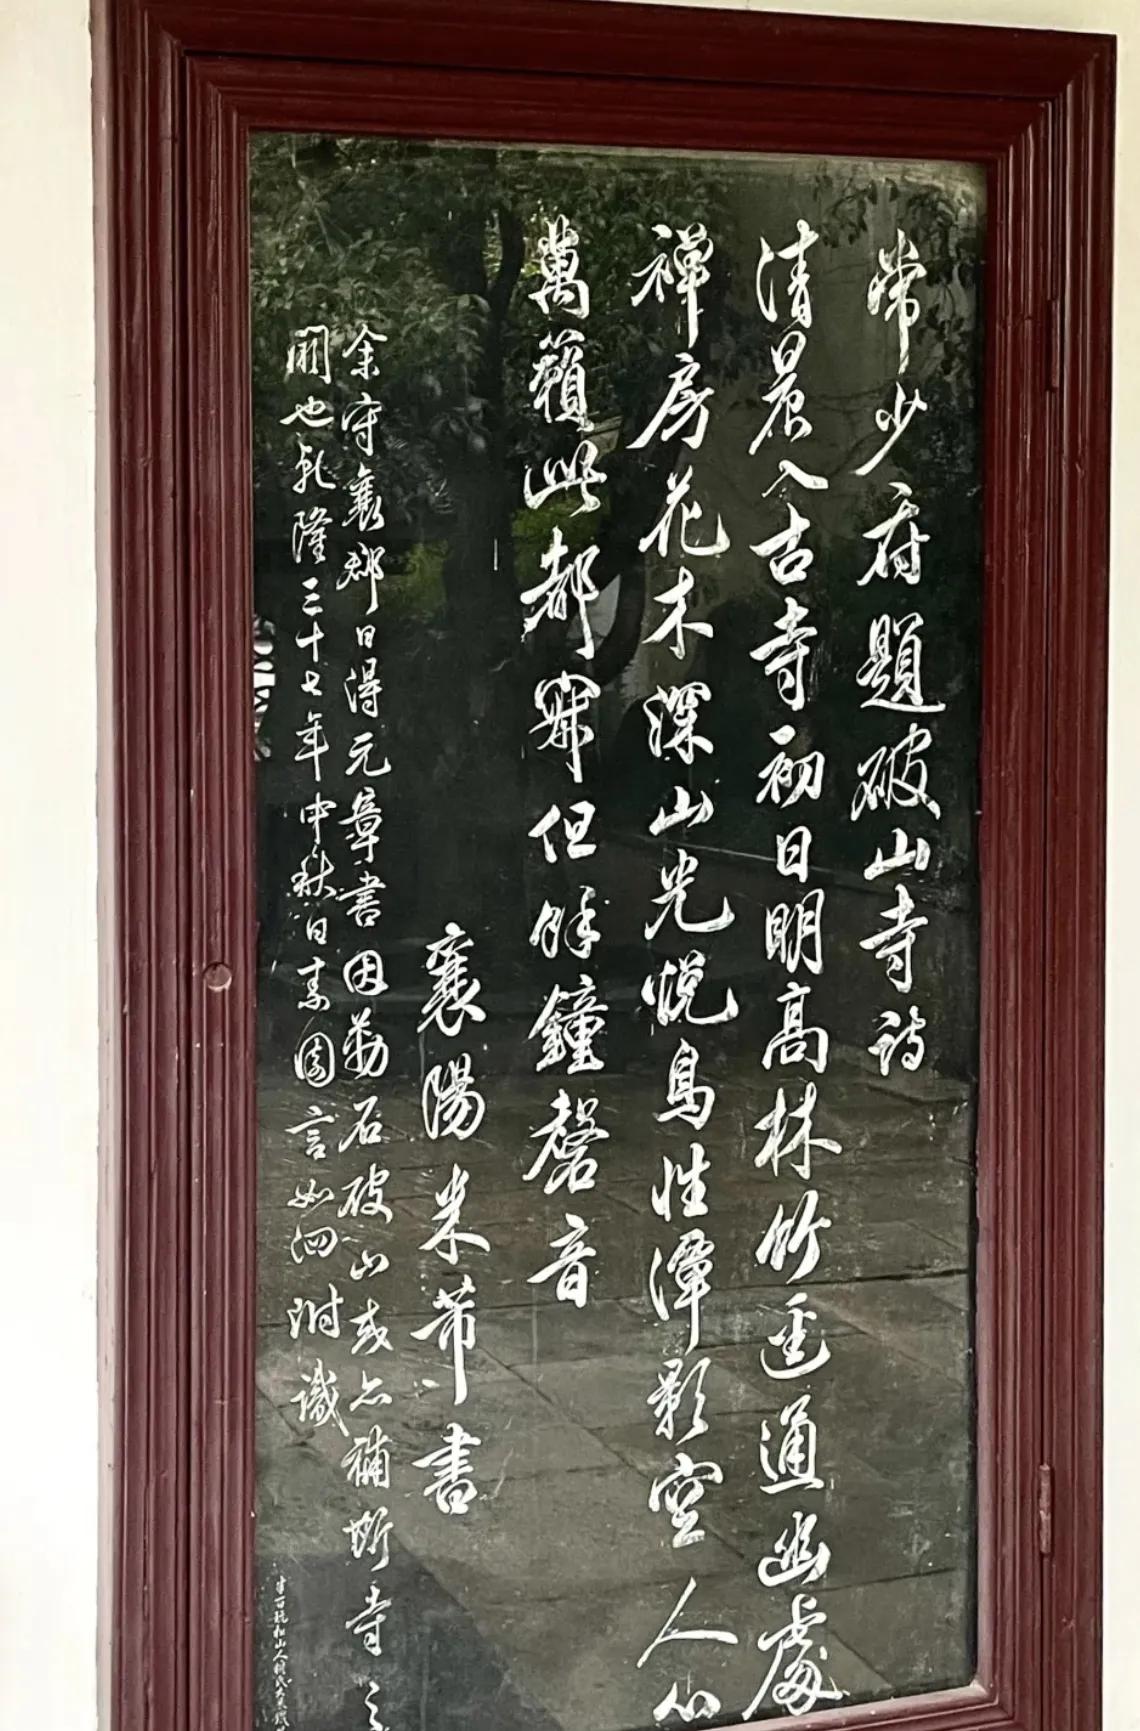 常少府題破山寺詩
清晨入古寺初日明高林竹迳通幽處
禅房花木深山光悦鳥性潭影空人心
萬籟此都寂但餘鐘磬音
襄陽米芾書
余守襄郡日得元章書因勒石破山或亦補斯寺之
闕也乾隆三十七年中秋日素園言如泗附識